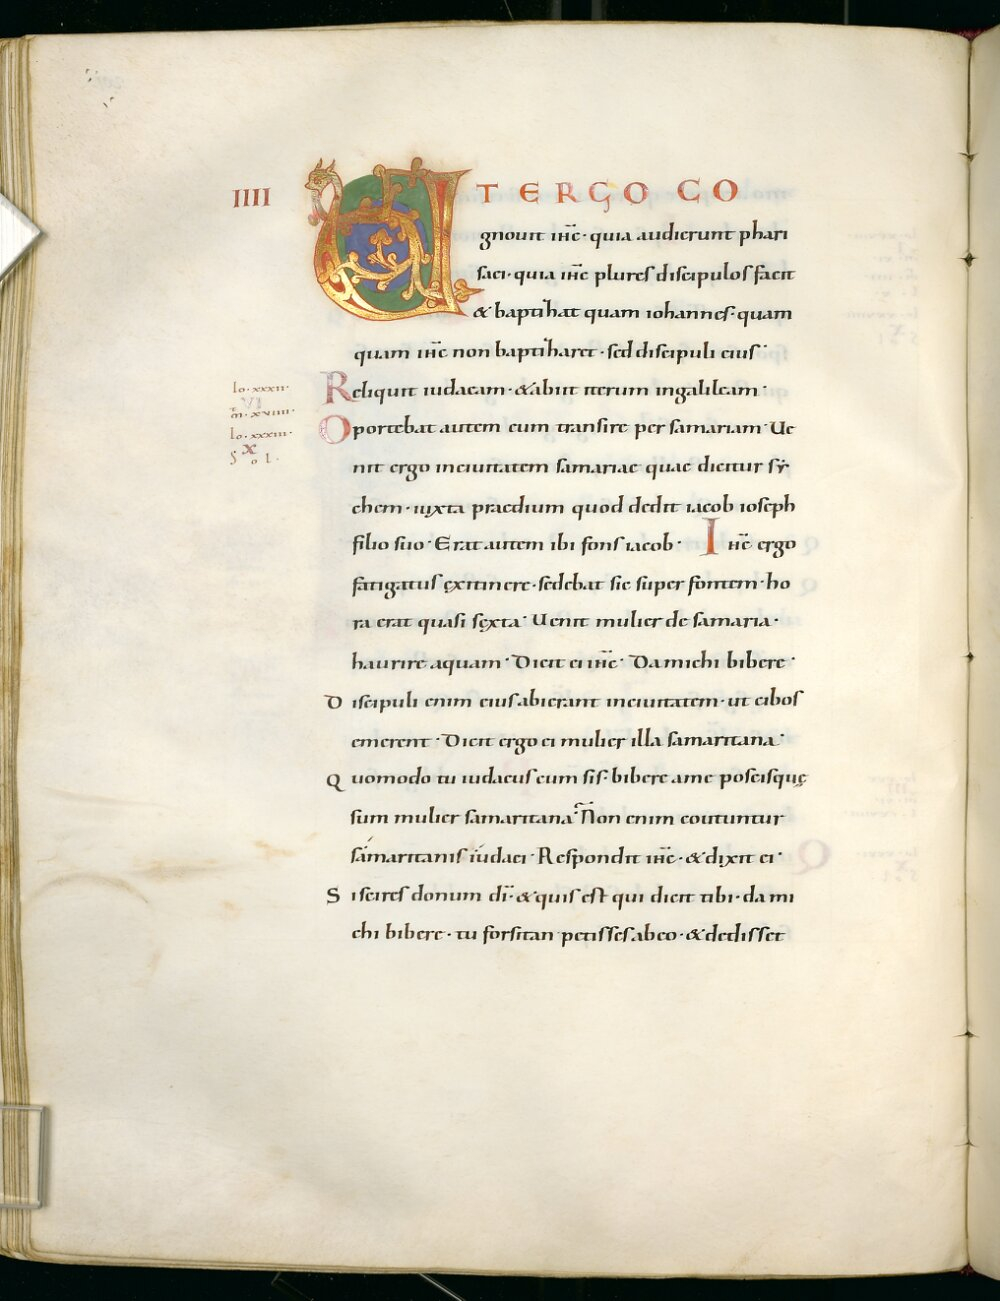 IIII
UT ERGO CO
gnouit ihc· quia audierunt phari
saei· quia ihc plures discipulos facit
& baptizat quam iohannes· quam
quam ihc non baptizaret· sed discipuli eius·
Reliquit iudaeam· & abiit iterum in galileam·
Io· xxxii·
VI
m̄· xviiii·
Oportebat autem eum transire per samariam· Ue
Io· xxxiii·
X
SoL·
nit ergo in ciuitatem samariae quae dicitur sy
chem· iuxta praedium quod dedit iacob ioseph
filio suo· Erat autem ibi fons iacob· Ihc ergo
fatigatus ex itinere· sedebat sic super fontem· ho
ra erat quasi sexta· Uenit mulier de samaria·
haurire aquam· Dicit ei ihc· Da michi bibere·
Discipuli enim eius abierant in ciuitatem· ut cibos
emerent· Dicit ergo ei mulier illa samaritana·
Quomodo tu iudaeus cum sis· bibere a me poscis quę
sum mulier samaritana· Non enim coutuntur
samaritanis iudaei· Respondit ihc· & dixit ei·
Si scires donum dī· & quis est qui dicit tibi· da mi
chi bibere· tu forsitan petisses ab eo· & dedisset